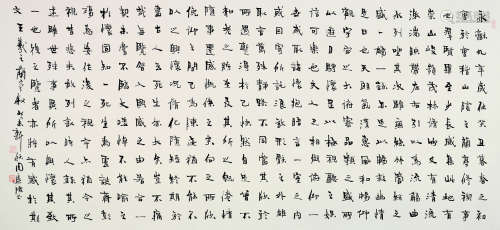 永和九年歲在癸丑暮春之初
會于會稽山陰之蘭亭脩禊事
也群賢畢至少長咸集此地有
崇山峻領茂林脩竹又有清流
激湍映帶左右引以為流觴曲
水列坐其次雖無絲竹管弦之
盛一觴一詠亦足以暢敘幽情
是日也天朗氣清惠風和暢仰
觀宇宙之大俯察品類之盛所
以遊目騁懷足以極視聽之娛
信可樂也夫人之相與俯仰一
世或取諸懷抱悟言一室之內
或因寄所託放浪形骸之外雖
趣舍萬殊靜躁不同當其欣於
所遇暫得於己快然自足不知
老之將至及其所之既倦情隨
事遷感慨係之矣向之所欣俛
仰之間已為陳跡猶不能不以
之興懷況脩短隨化終期於盡
古人云死生亦大矣豈不痛哉
每攬昔人興感之由若合一契
未嘗不臨文嗟悼不能喻之於
懷固知一死生為虛誕齊彭殤
為妄作後之視今亦由今之視
昔悲夫故列敘時人錄其所述
雖世殊事異所以興懷其致
一也後之覽者亦將有感於斯
文 王羲之蘭亭敘